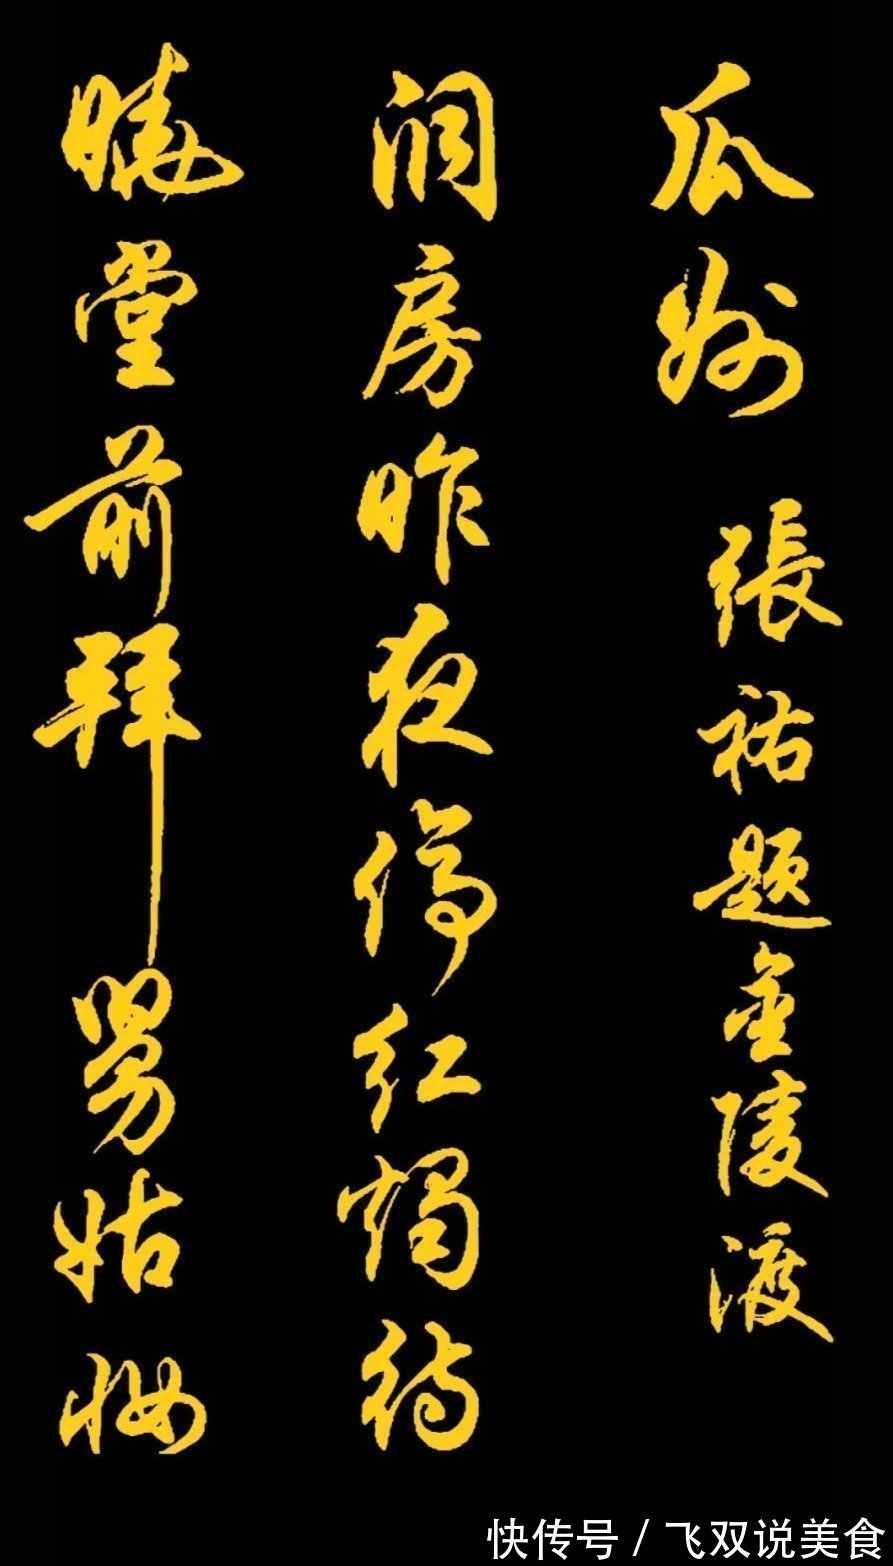 瓜州 張祜題金陵渡
洞房昨夜停红燭待
曉堂前拜舅姑妝
快传号 / 飞双说美食